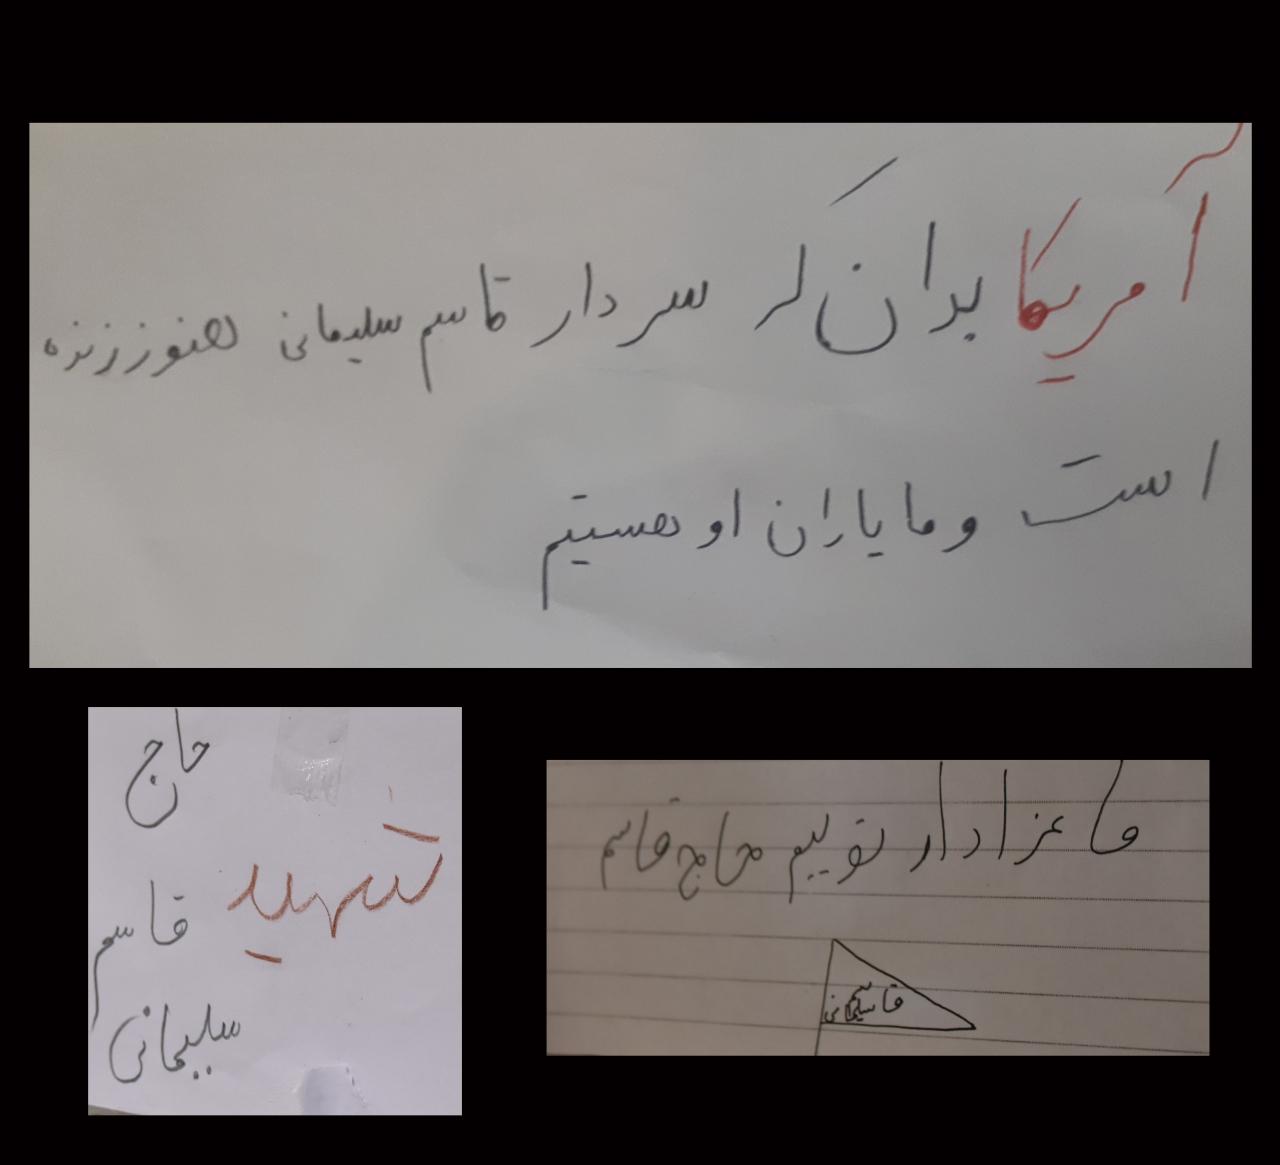 آمریکا بدان که سردار قاسم سلیمانی هنوز زنده
است و ما یاران او هستیم
حاج
شهید
قاسم
سلیمانی
ما عزادار توییم حاج قاسم
قاسم سلیمانی